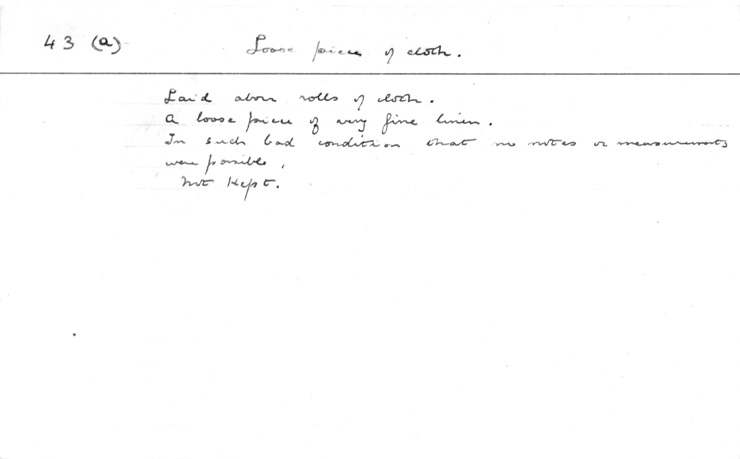 43 (a) Loose piece of cloth.
Laid above rolls of cloth.
A loose piece of very fine linen.
In such bad condition that no notes or measurements
were possible,
Not Kept.